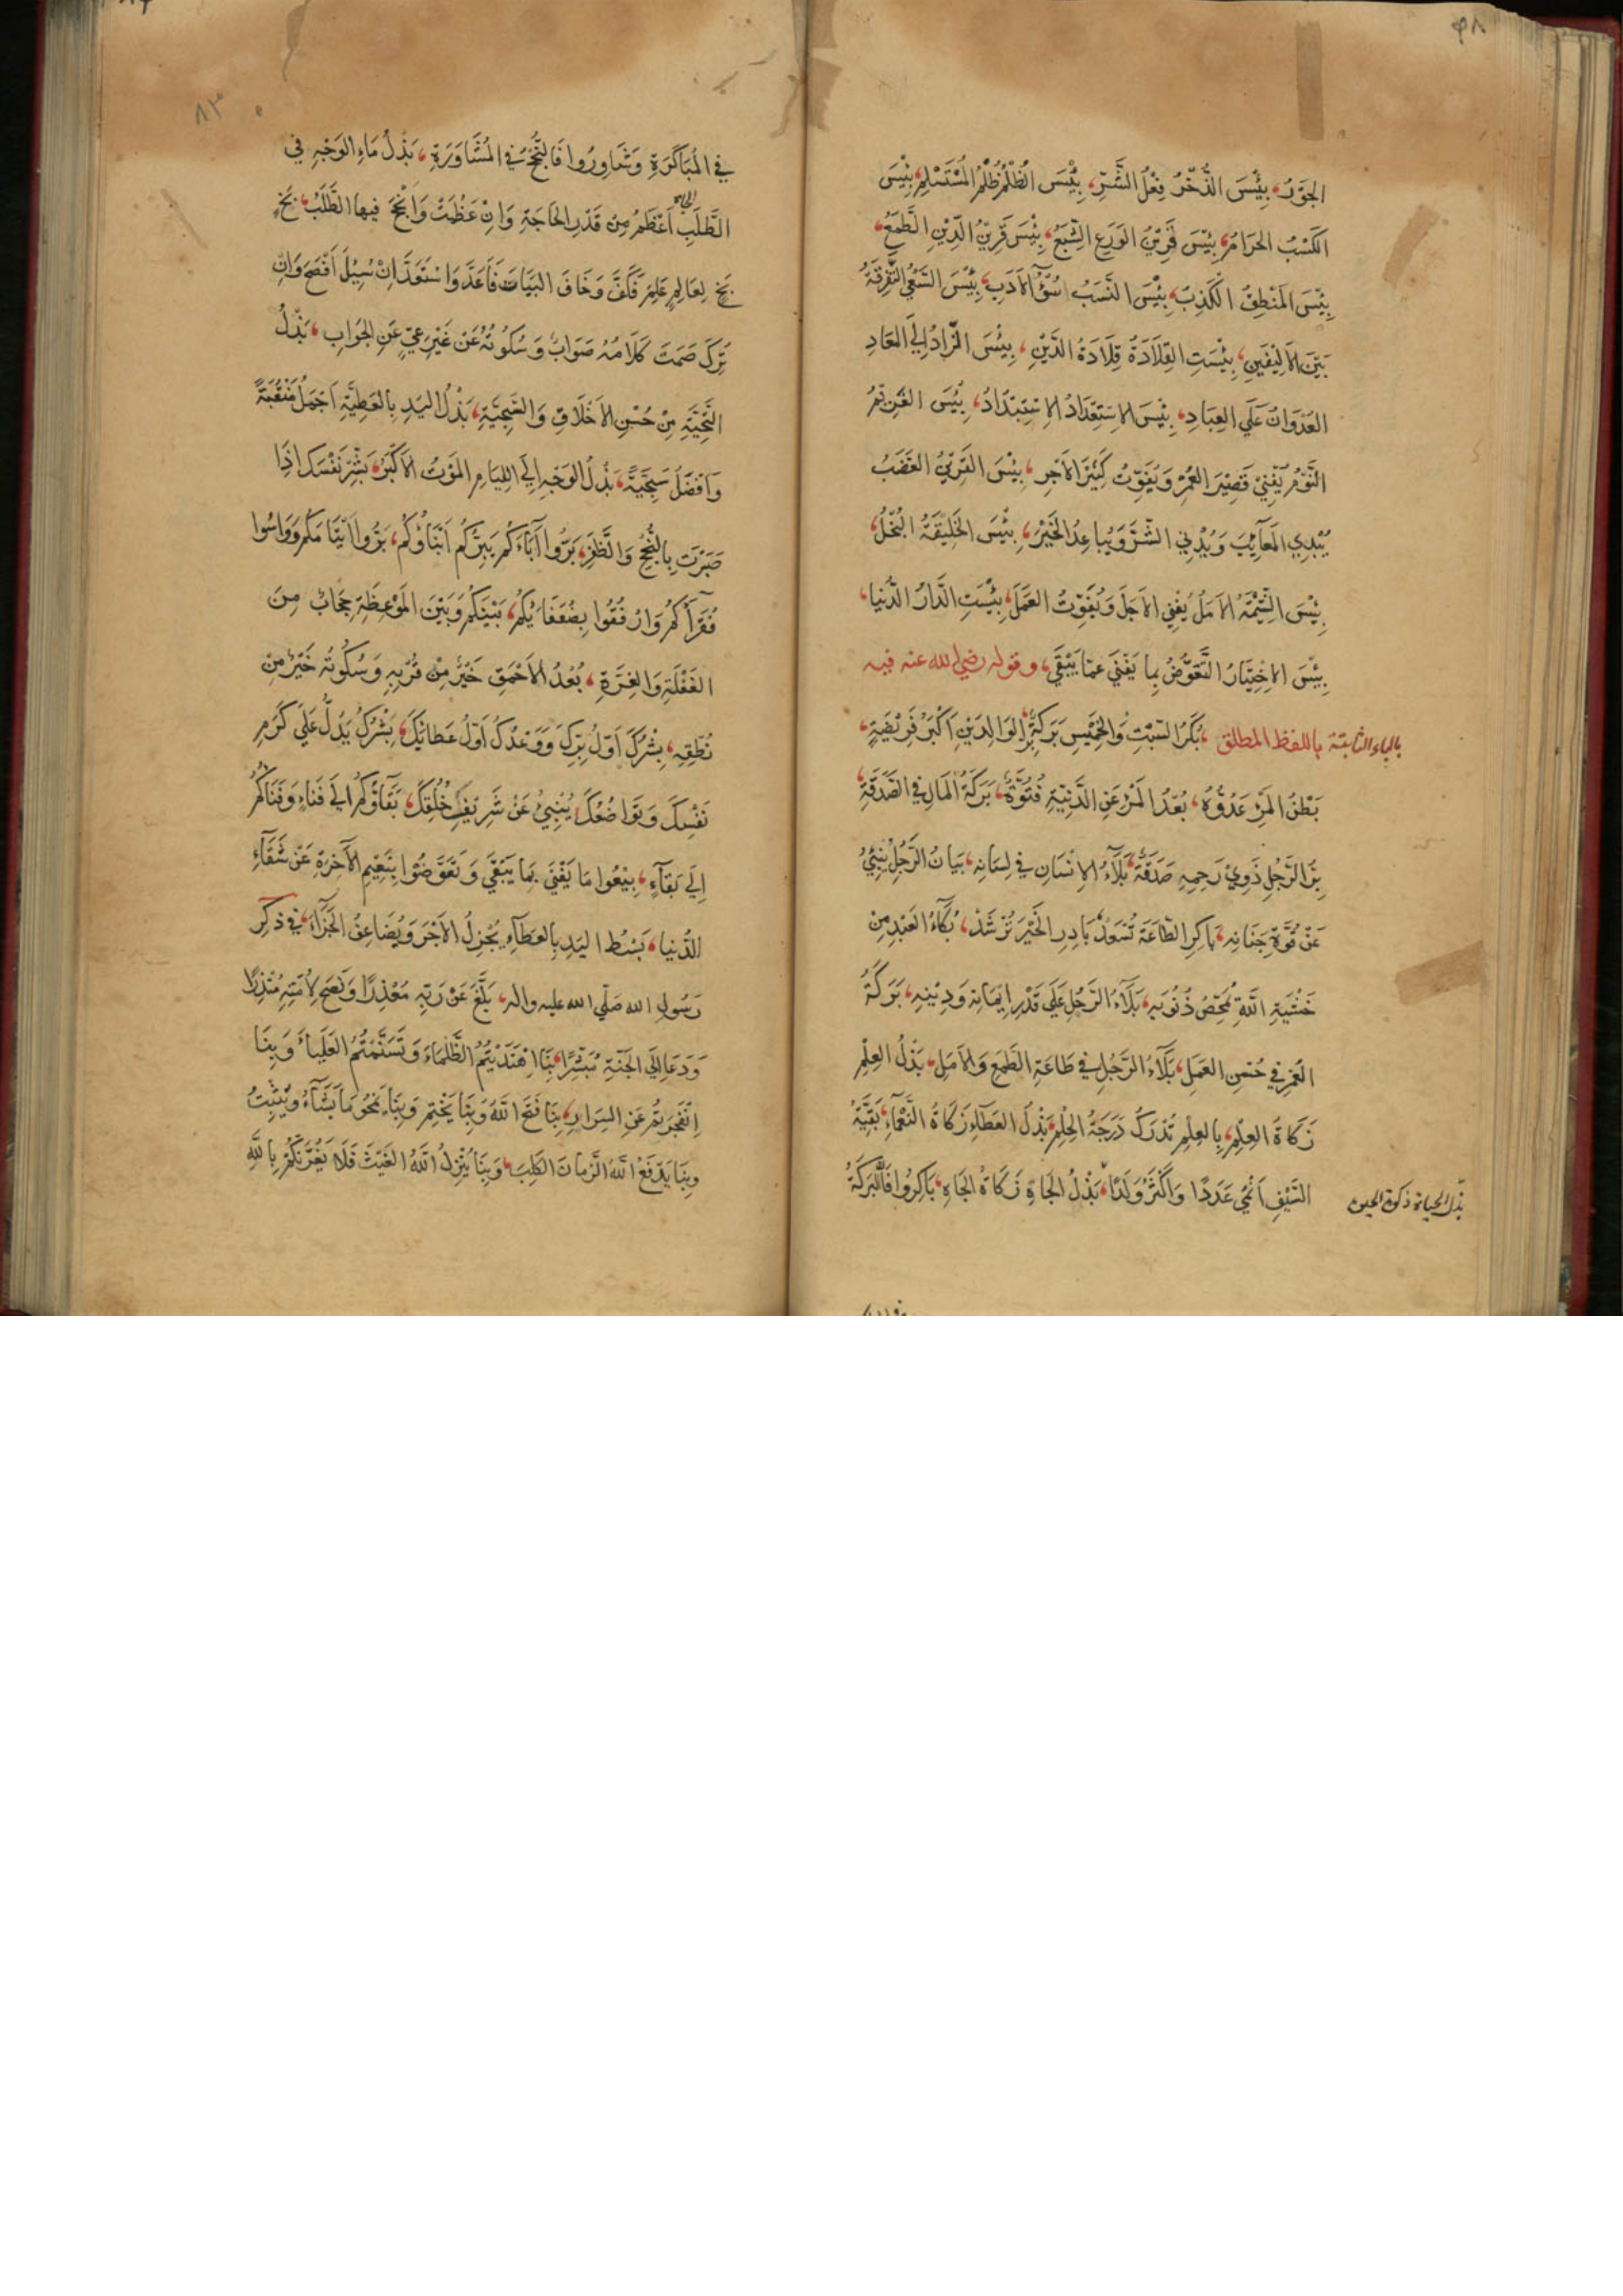 ٩٨
الجَوْرُ، بِئْسَ الذُّخْرُ فِعْلُ الشَّرِّ، بِئْسَ الظُّلْمُ ظُلْمُ المُسْتَسْلِمِ، بِئْسَ
الكَسْبُ الحَرَامُ، بِئْسَ قَرِيْنُ الوَرَعِ الشِّبَعُ، بِئْسَ قَرِيْنُ الدِّيْنِ الطَّمَعُ،
بِئْسَ المَنْطِقُ الكَذِبُ، بِئْسَ النَسَبُ سُوْٓءُ الاَدَبِ، بِئْسَ السَّعْيُ التَّفْرِقَةُ
بَيْنَ الاَلِيْفَيْنِ، بِئْسَتِ القِلَادَةُ قِلَادَةُ الدَّيْنِ، بِئْسَ الزَّادُ اِلَي المَعَادِ
العُدْوَانُ عَلَي العِبَادِ، بِئْسَ الاِسْتِعْدَادُ الاِسْتِبْدَادُ، بِئْسَ الغَرِيْمُ
النَّوْمُ يُفْنِيْ قَصِيْرَ العُمْرِ وَيُفَوِّتُ كَثِيْرَ الاَجْرِ، بِئْسَ القَرِيْنُ الغَضَبُ
يُبْدِي المَعَآئِبَ وَيُدْنِي الشَّرَّ وَيُبَاعِدُ الخَيْرَ، بِئْسَ الخَلِيْقَةُ البُخْلُ،
بِئْسَ الشِّيْمَةُ الاَمَلُ يُفْنِي الاَجَلَ وَيُفَوِّتُ العَمَلَ، بِئْسَتِ الدَّارُ الدُّنْيَا،
بِئْسَ الاِخْتِيَارُ التَّعَوُّضُ بِمَا يَفْنَي عَمَّا يَبْقَي، وقوله رضي الله عنه فيه
بالباء الثابتة باللفظ المطلق، بُكَرُ السَّبْتِ وَالخَمِيْسِ بَرَكَةٌ، بِرُّ الوَالِدَيْنِ اَكْبَرُ فَرِيْضَةٍ،
بَطْنُ المَرْءِ عَدُوُّهُ، بُعْدُ المَرْءِ عَنِ الدَّنِيَّةِ فُتُوَّةٌ، بَرَكَةُ المَالِ فِي الصَّدَقَةِ،
بِرُّ الرَّجُلِ ذَوِيْ رَحِمِهِ صَدَقَةٌ، بَلَآءُ الاِنْسَانِ فِي لِسَانِهِ، بَيَانُ الرَّجُلِ يُنْبِئُ
عَنْ قُوَّةِ جَنَانِهِ، بَاكِرِ الطَّاعَةَ تَسْعَدْ، بَادِرِ الخَيْرَ تَرْشَدْ، بُكَآءُ العَبْدِ مِنْ
خَشْيَةِ اللَّهِ يُمَحِّصُ ذُنُوْبَهِ، بَلَآءُ الرَّجُلِ عَلَي قَدْرِ اِيْمَانِهِ وَدِيْنِهِ، بَرَكَةُ
العُمْرِ فِي حُسْنِ العَمَلِ، بَلَآءُ الرَّجُلِ فِي طَاعَةِ الطَمَعِ وَالاَمَلِ، بَذْلُ العِلْمِ
زَكَاةُ العِلْمِ، بِالعِلْمِ تُدْرَكُ دَرَجَةُ الحِلْمِ، بَذْلُ العَطَآءِ زَكَاةُ النَّعْمَآءِ، بَقِيَّةُ
السَّيْفِ اَنْمَي عَدَدًا وَاَكْثَرُ وَلَدًا، بَذْلُ الجَاهِ زَكَاةُ الجَاهِ، بَاكِرُوا فَالبَرَكَةُ
بذل الحياة زكوة
٨٣
فِي المُبَاكَرَةِ وَشَاوِرُوا فَالنُّجْحُ فِي المُشَاوَرَةِ، بَذْلُ مَاءِ الوَجْهِ فِي
الطَّلَبِ اَعْظَمُ مِنْ قَدْرِ الحَاجَةِ وَاِنْ عَظُمَتْ وَاَنْجَحَ فِيهَا الطَّلَبُ، بَخٍ
بَخٍ لِعَالِمٍ عَلِمَ فَكَفَّ وَخَافَ البَيَاتَ فَاَعَدَّ وَاسْتَعَدَّ اِنْ سُئِلَ اَفْصَحَ وَاِنْ
تُرِكَ صَمَتَ كَلَامُهُ صَوَابٌ وَسُكُوتُهُ عَنْ غَيْرِ عِيٍّ عَنِ الجَوَابِ، بَذْلُ
التَّحِيَّةِ مِنْ حُسْنِ الاَخْلَاقِ وَالسَّجِيَّةِ، بَذْلُ اليَدِ بِالعَطِيَّةِ اَجْمَلُ مَنْقَبَةً
وَاَفْضَلُ سَجِيَّةً، بَذْلُ الوَجْهِ اِلَي اللِيَامِ المَوْتُ الاَكْبَرُ، بَشِّرْ نَفْسَكَ اِذَا
صَبَرْتَ بِالنُّجْحِ وَالظَّفَرِ، بَرُّوا آبَاءَكُمْ يَبِرَّكُمْ اَبْنَاؤُكُمْ، بَرُّوا اَيْتَامَكُمْ وَوَاسُوا
فُقَرَآءَكُمْ وَارْفُقُوا بِضُعَفَايُكُمْ، بَيْنَكُمْ وَبَيْنَ المَوْعِظَةِ حِجَابٌ مِنَ
الغَفْلَةِ وَالغِرَّةِ، بُعْدُ الاَحْمَقِ خَيْرٌ مِنْ قُرْبِهِ وَسُكُوتُهُ خَيْرٌ مِنْ
نُطْقِهِ، بِشْرُكَ اَوَّلُ بِرِّكَ وَوَعْدُكَ اَوَّلُ عَطَائِكَ، بِشْرُكَ يَدُلُّ عَلَي كَرَمِ
نَفْسِكَ وَتَوَاضُعُكَ يُنْبِيُ عَنْ شَرِيْفِ خُلُقِكَ، بَقَآؤُكُمْ اِلَي فَنَاءٍ وَفَنَاؤُكُمْ
اِلَي بَقَآءٍ، بِيْعُوا مَا يَفْنَي بِمَا يَبْقَي وَتَعَوَّضُوْا بِنَعِيْمِ الآخِرَةِ عَنْ شَقَآءِ
الدُّنْيَا، بَسْطُ اليَدِ بِالعَطَآءِ يُجْزِلُ الاَجْرَ وَيُضَاعِفُ الجَزَآءَ، فِي ذِكْرِ
رَسُولِ الله صَلّي الله عليه واله، بَلَّغَ عَنْ رَبِّهِ مُعْذِرًا وَنَصَحَ لِاُمَّتِهِ مُنْذِرًا
وَدَعَا اِلَي الجَنَّةِ مُبَشِّرًا، بِنَا اهْتَدَيْتُمُ الظَّلْمَاءَ وَتَسَنَّمْتُمُ العَلْيَاءَ وَبِنَا
اِنْفَجَرْتُمْ عَنِ السِرَارِ، بِنَا فَتَحَ اللَّهُ وَبِنَا يَخْتِمُ وَبِنَا يَمْحُو مَا يَشَآءُ وَيُثْبِتُ
وَبِنَا يَدْفَعُ اللَّهُ الزَّمَانَ الكَلِبَ، وَبِنَا يُنْزِلُ اللَّهُ الغَيْثَ فَلَا يَغُرَّنَّكُمْ بِاللَّهِ